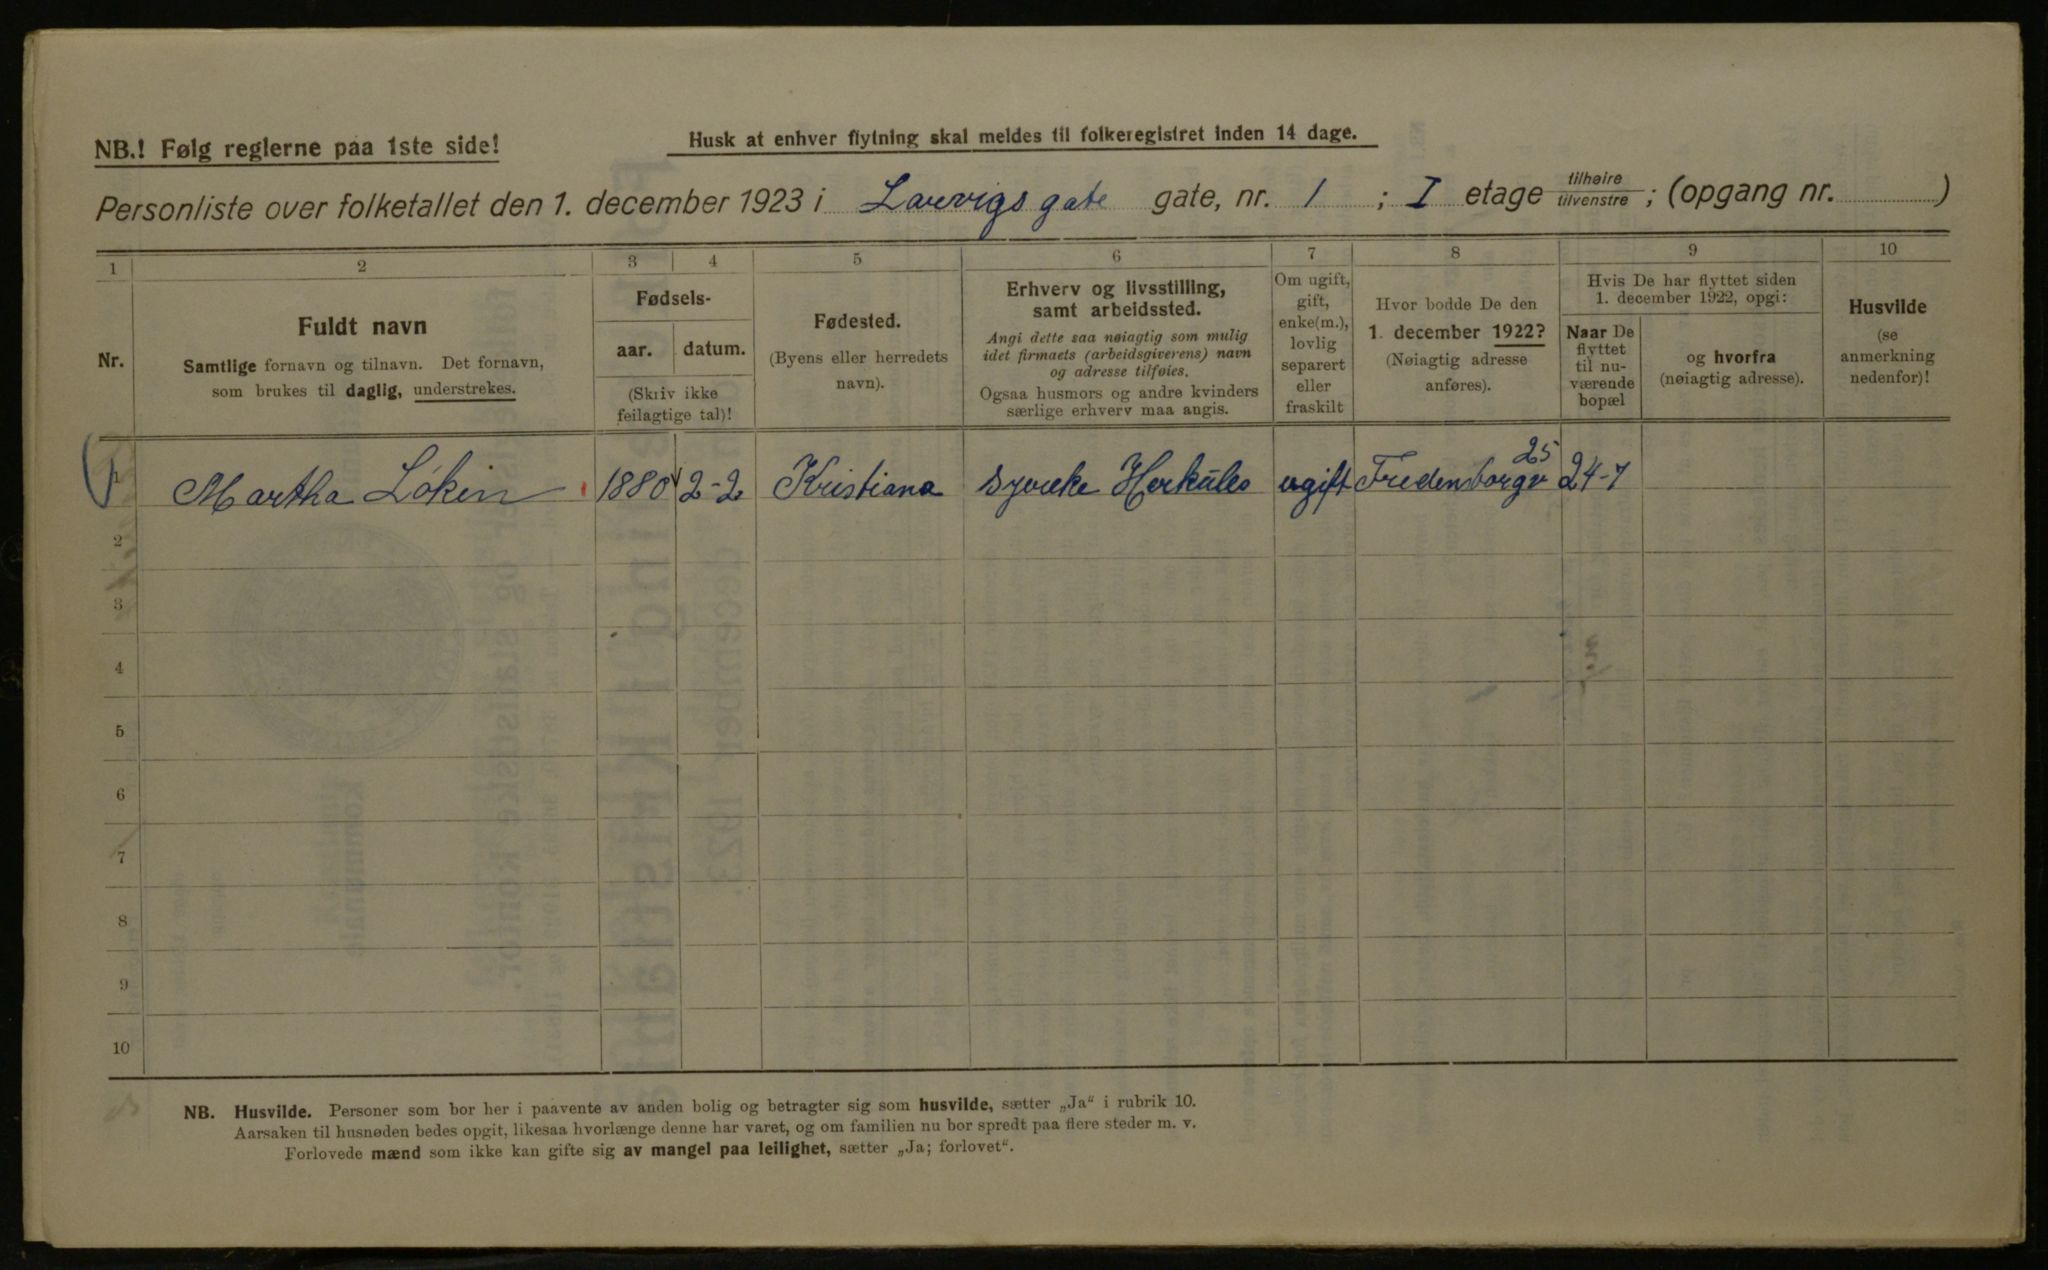 NB.! Følg reglerne paa 1ste side!
Husk at enhver flytning skal meldes til folkeregistret inden 14 dage.
Personliste over folketallet den 1. december 1923 i Larvigs gate gate, nr. 1 ; I etage tilhøire/tilvenstre ; (opgang nr. )
1 2 3 4 5 6 7 8 9 10
Nr.
Fuldt navn
Samtlige fornavn og tilnavn. Det fornavn,
som brukes til daglig, understrekes.
Fødsels-
aar. datum.
(Skriv ikke
feilagtige tal)!
Fødested.
(Byens eller herredets
navn).
Erhverv og livsstilling,
samt arbeidssted.
Angi dette saa nøiagtig som mulig
idet firmaets (arbeidsgiverens) navn
og adresse tilføies.
Ogsaa husmors og andre kvinders
særlige erhverv maa angis.
Om ugift,
gift,
enke(m.),
lovlig
separert
eller
fraskilt
Hvor bodde De den
1. december 1922?
(Nøiagtig adresse
anføres).
Hvis De har flyttet siden
1. december 1922, opgi:
Naar De
flyttet
til nu-
værende
bopæl
og hvorfra
(nøiagtig adresse).
Husvilde
(se
anmerkning
nedenfor)!
1 Martha Løken 1880 2-2 Kristiana Herkules ugift Fredensborgv 25 24-7
2
3
4
5
6
7
8
9
10
NB. Husvilde. Personer som bor her i paavente av anden bolig og betragter sig som husvilde, sætter „Ja“ i rubrik 10.
Aarsaken til husnøden bedes opgit, likesaa hvorlænge denne har varet, og om familien nu bor spredt paa flere steder m. v.
Forlovede mænd som ikke kan gifte sig av mangel paa leilighet, sætter „Ja; forlovet“.